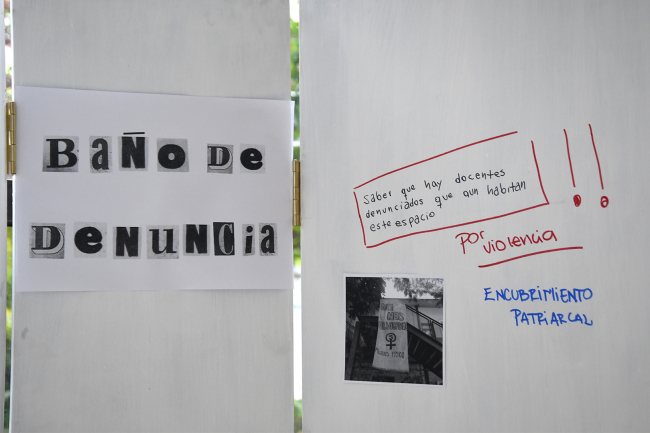 BaÑo De
DeNUNCia
Saber que hay docentes
denunciados que aun habitan
este espacio
!!
por
violencia
ENCUBRIMIENTO
PATRIARCAL